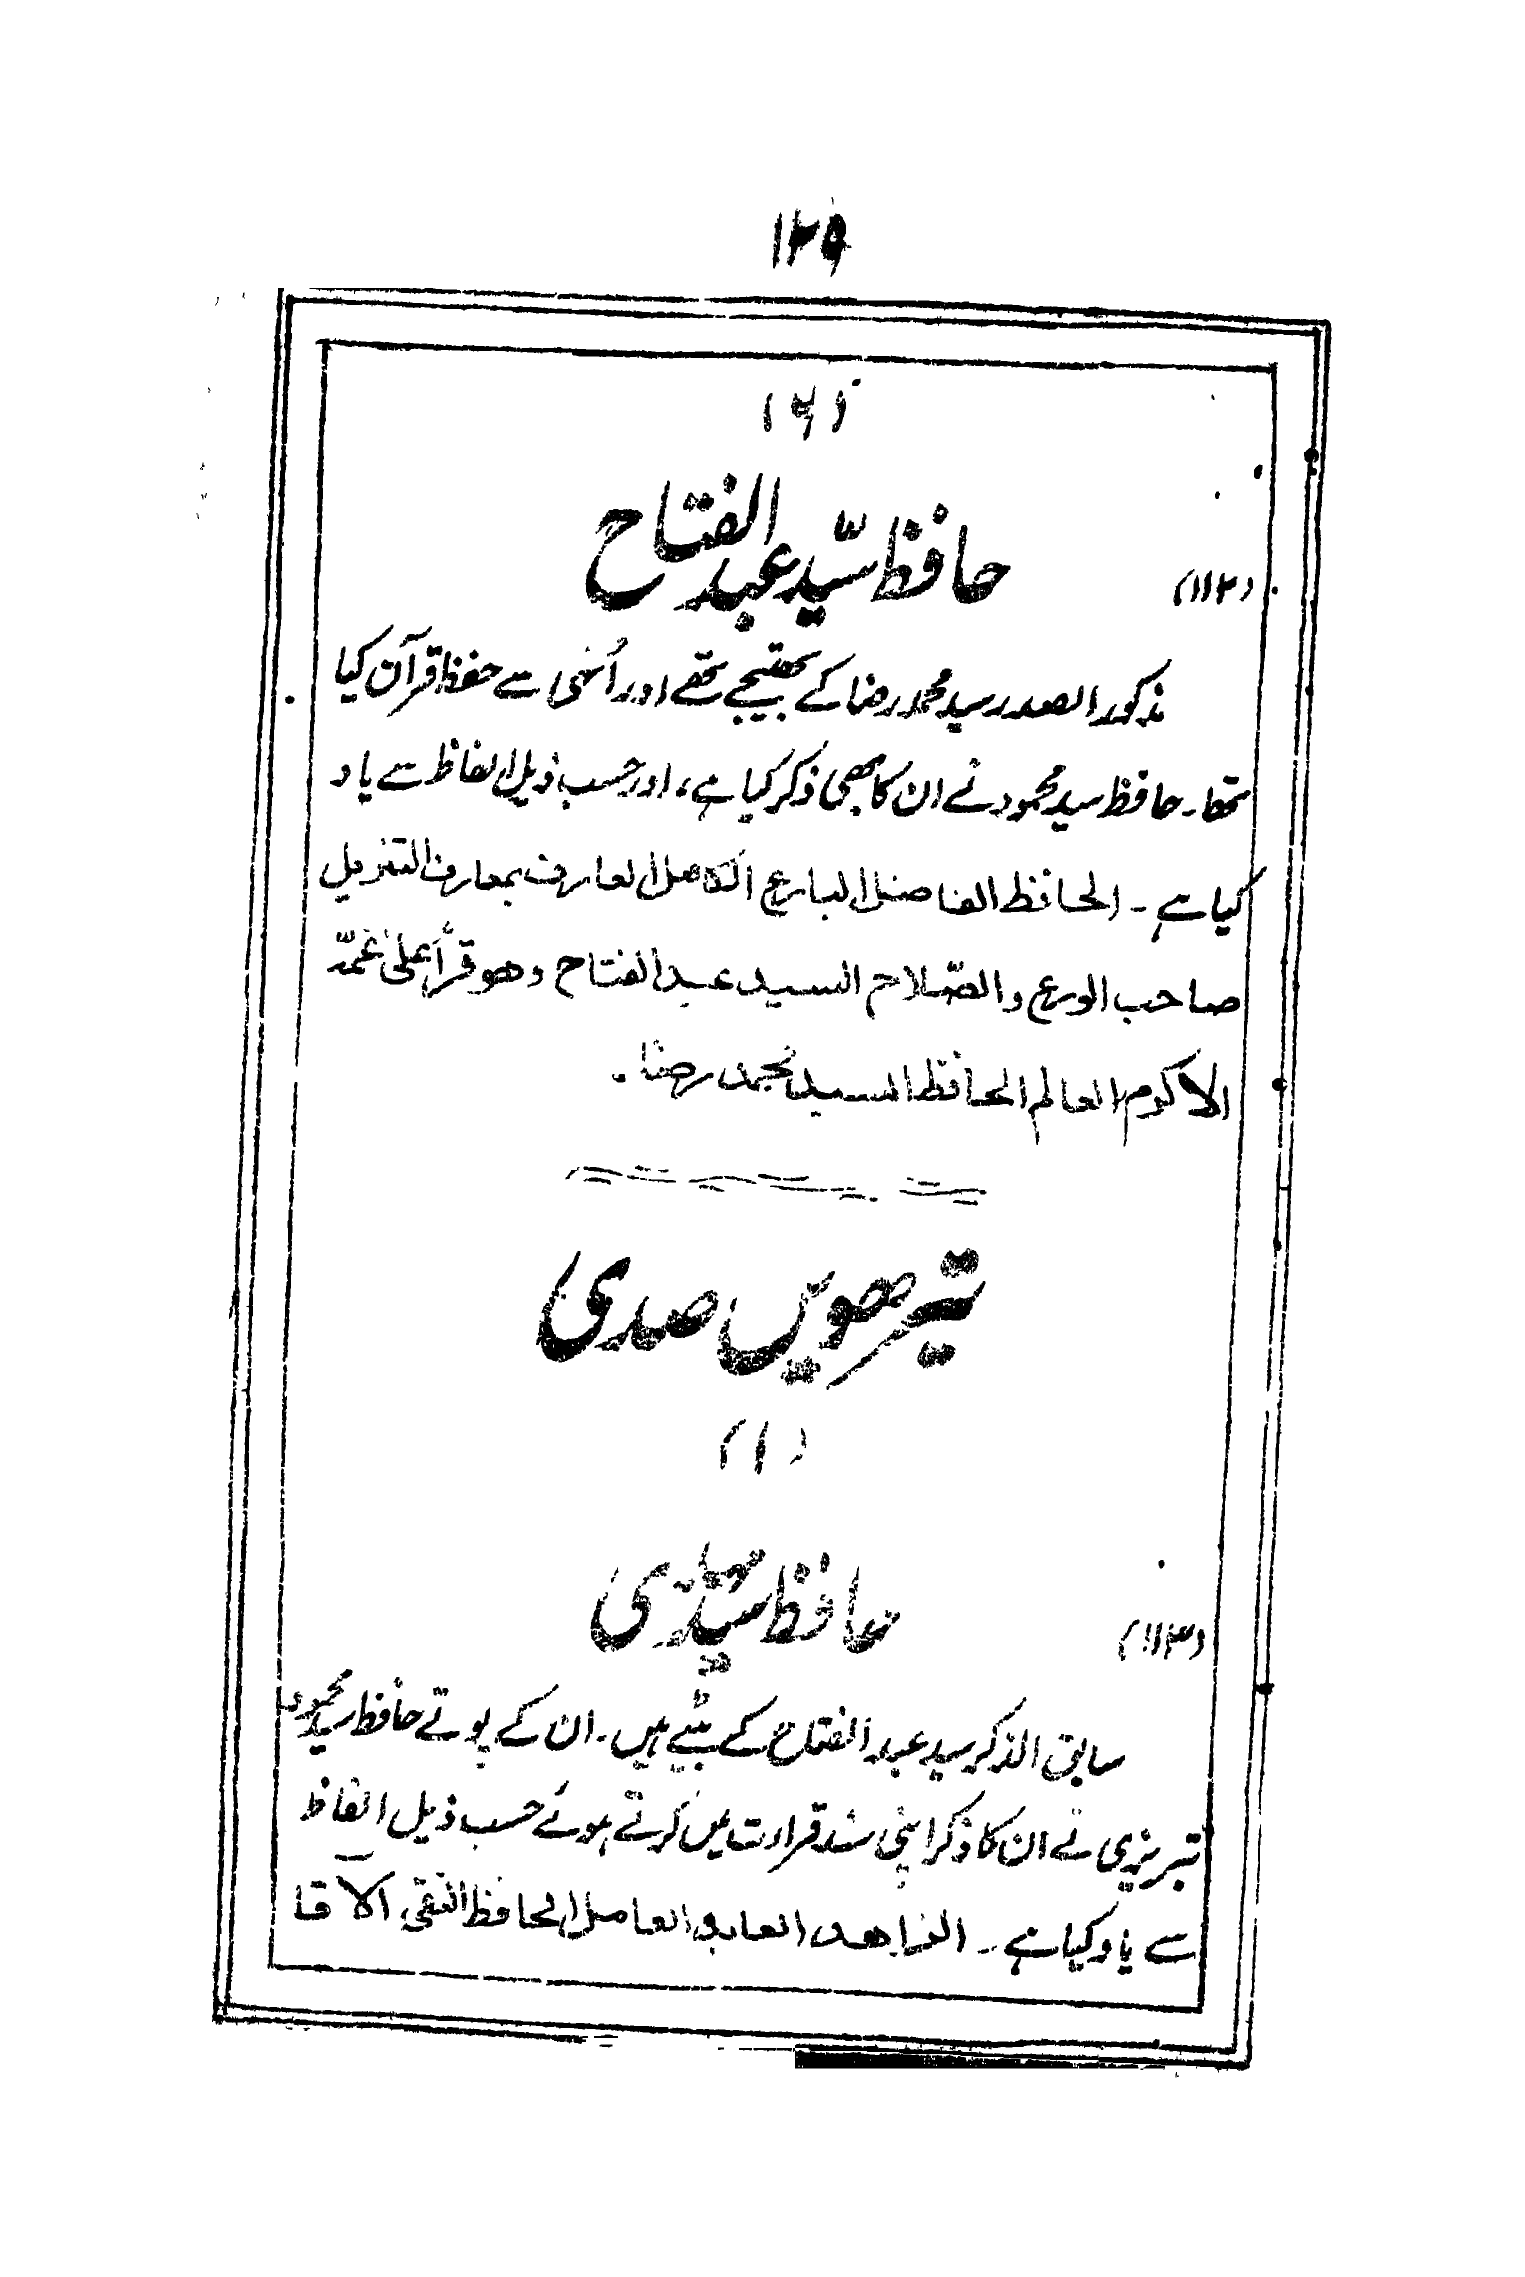 ۱۲۵
(۶)
(۱۱۲) حافظ سیّد عبد الفتاح
مذکور الصدر سید محمد رضا کے بھتیجے تھے اور اُنہی سے حفظ قرآن کیا
تھا۔ حافظ سید محمود نے ان کا بھی ذکر کیا ہے، اور حسب ذیل الفاظ سے یاد
کیا ہے۔ الحافظ الفاضل البارع الکامل العارف بمعارف التنزیل
صاحب الورع والصّلاح السید عبد الفتاح وهو قرأ علی عمّہ
الاکرم العالم الحافظ السید محمد رضا۔
تیرھویں صدی
(۱)
(۱۱۳) حافظ سید مہدی
سابق الذکر سید عبد الفتاح کے بیٹے ہیں۔ ان کے پوتے حافظ سید محمود
تبریزی نے ان کا ذکر اپنی سند قراءت میں کرتے ہوئے حسب ذیل الفاظ
سے یاد کیا ہے۔ الزاهد العابد العامل الحافظ التقی الآقا